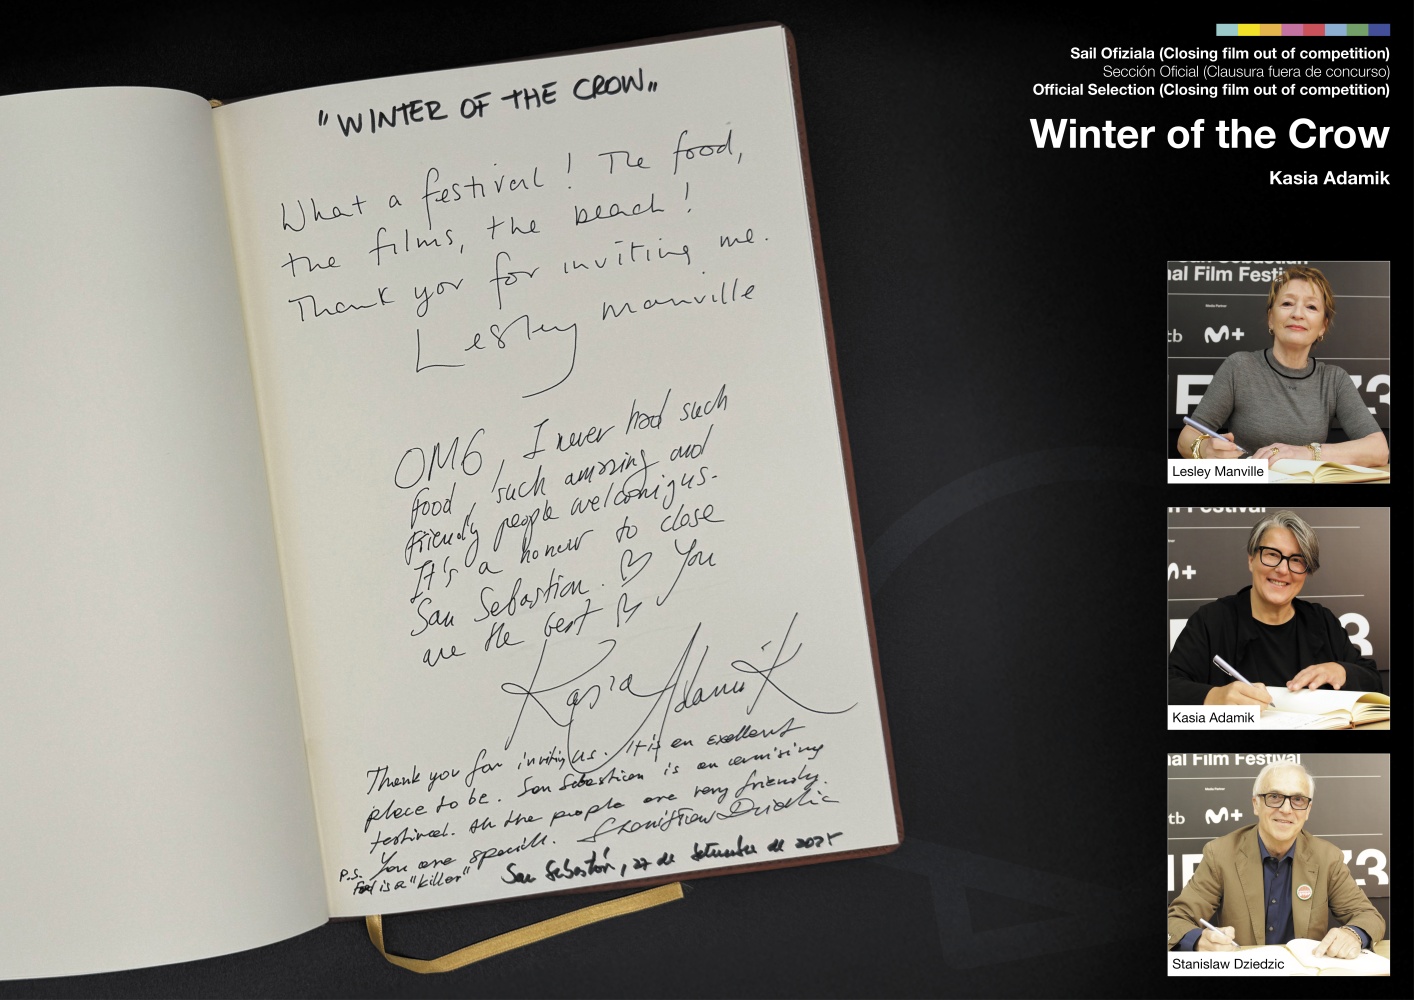 "WINTER OF THE CROW"
What a festival! The food,
the films, the beach!
Thank you for inviting me.
Lesley Manville
OMG, I never had such
food, such amazing and
friendly people welcomig us.
It's a honour to close
San Sebastian. You
are the best
Kasia Adamik
Thank you for inviting us. It is an exellent
place to be. San Sebastian is an amaising
festival. All the people are very friendly.
You are speciall. Stanisław Dziedzic
P.S. Food is a "killer"
San Sebastián, 27 de Setiembre de 2025
Sail Ofiziala (Closing film out of competition)
Sección Oficial (Clausura fuera de concurso)
Official Selection (Closing film out of competition)
Winter of the Crow
Kasia Adamik
nal Film Festi
Media Partner
tb M+
F 73
Lesley Manville
m Festival
M+
3
Kasia Adamik
nal Film Festival
Media Partner
tb M+
73
Stanislaw Dziedzic